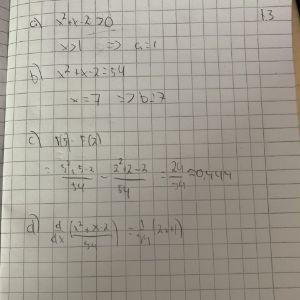 a) x²+x-2>0 13
x>1 => a=1
b) x²+x-2=54
x=7 => b=7
c) F(5) - F(2)
= (5²+5-2)/54 - (2²+2-2)/54 = 24/54 ≈0,444
d) d/dx (x²+x-2)/54 = 1/54 (2x+1)